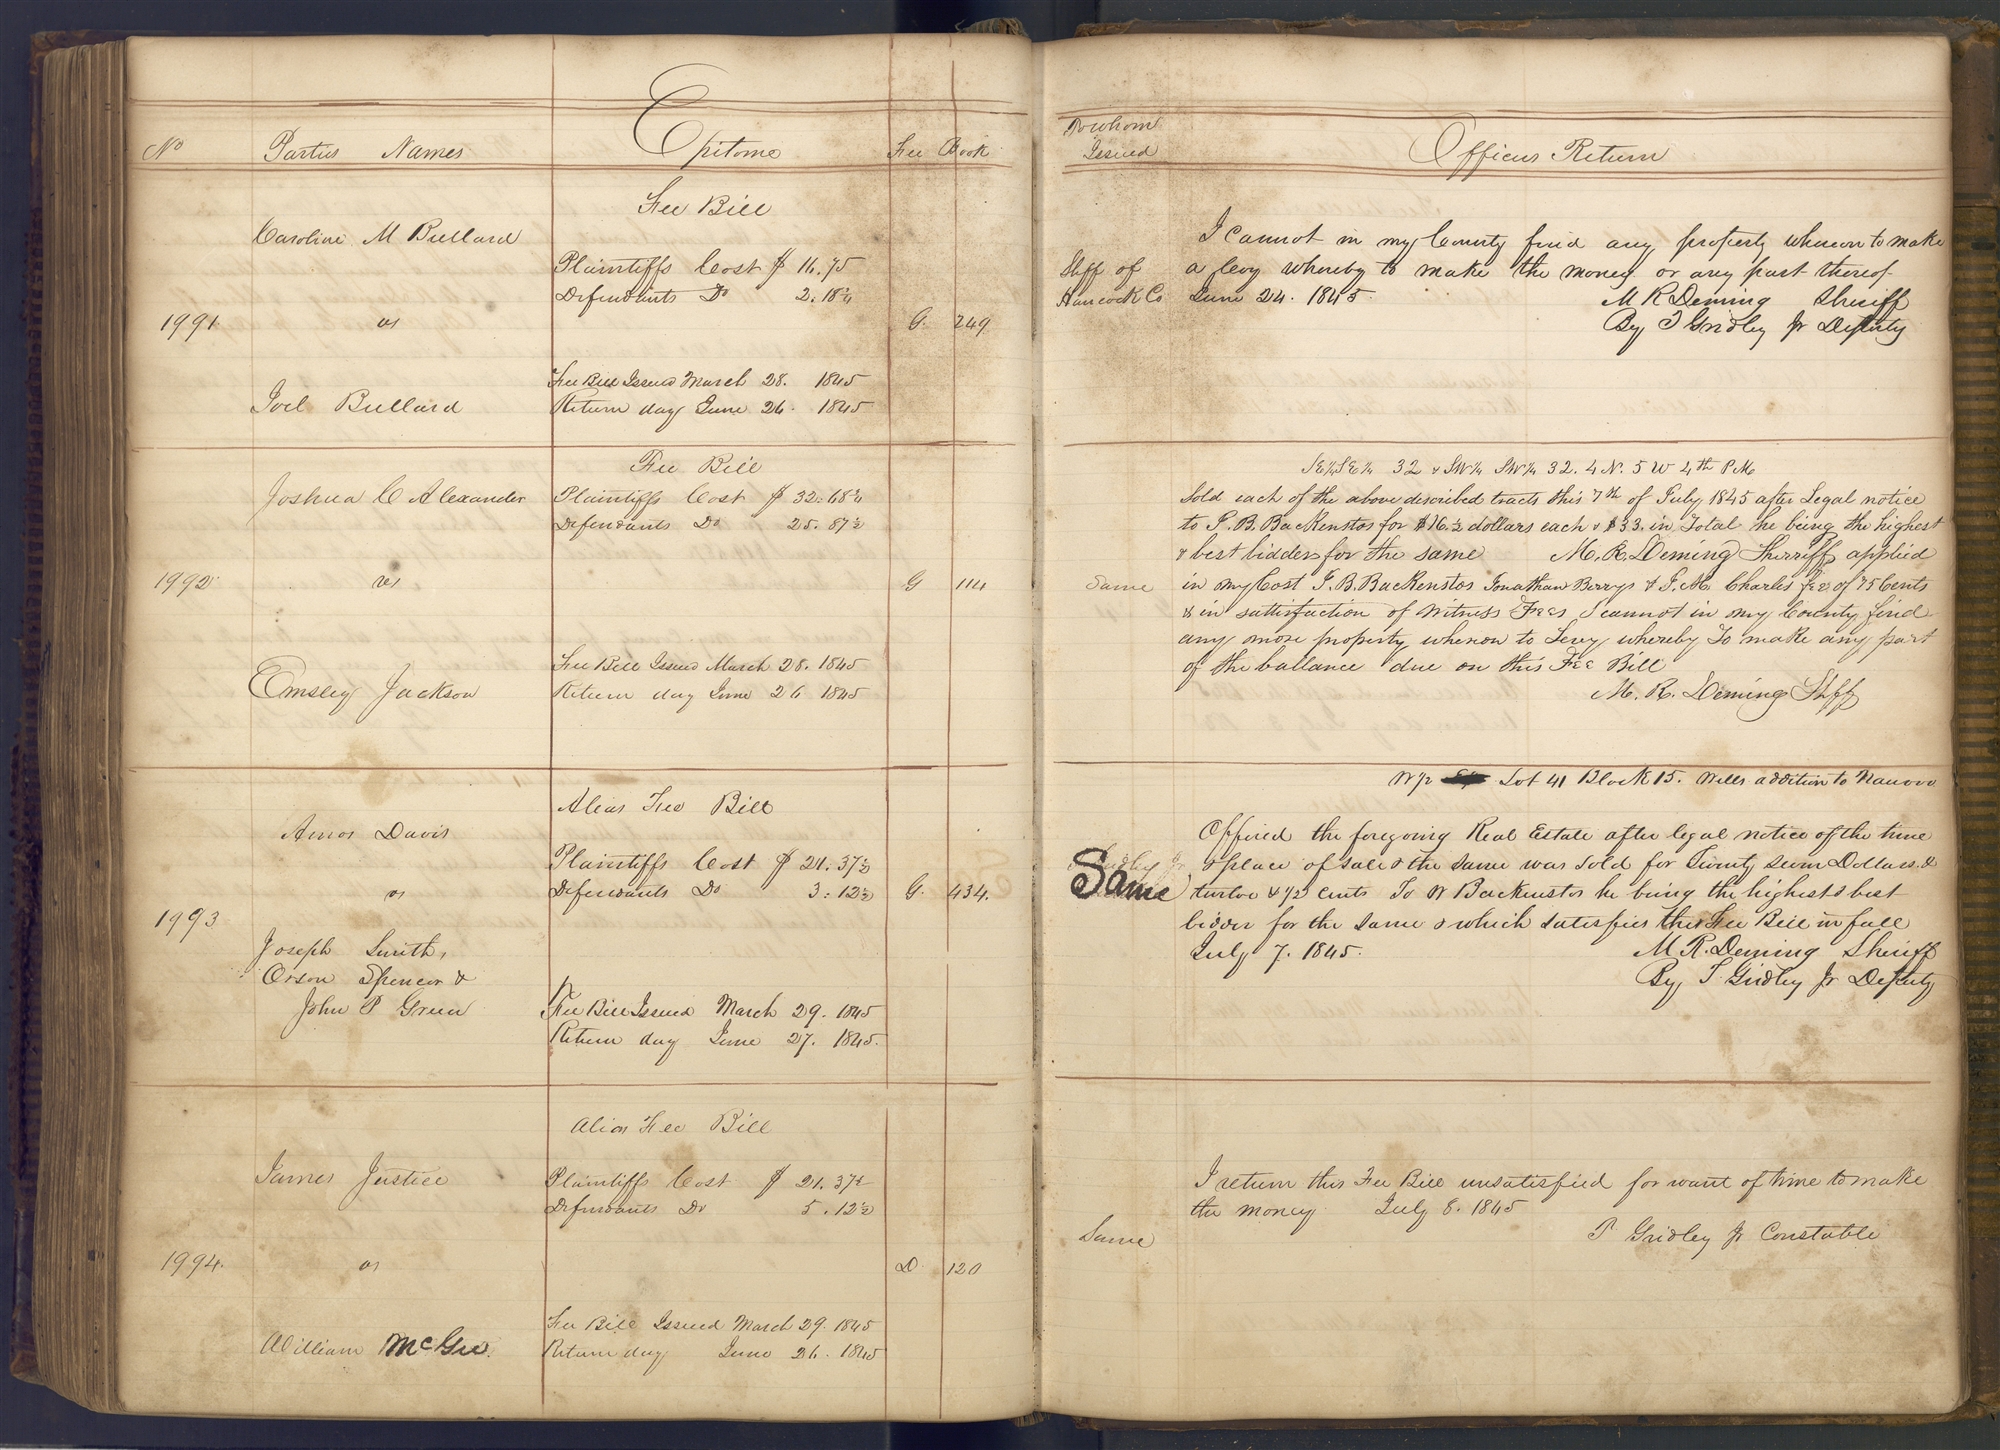 No Parties Names Epitome Fee Book
Fee Bill
Caroline M Bullard
Plaintiffs Cost $ 14.75
Defendants Do 2.18¾
1991 vs G. 249
Fee Bill Issued March 28. 1845
Joel Bullard Return day June 26. 1845
Fee Bill
Joshua C Alexander Plaintiffs Cost $ 32.68¾
Defendants Do 25.87½
1992 vs G 114
Fee Bill Issued March 28. 1845
Emsley Jackson Return day June 26 1845
Alias Fee Bill
Amos Davis
Plaintiffs Cost $ 21.37½
vs Defendants Do 3.12½ G. 434.
1993
Joseph Smith,
Orson Spencer &
John P Green Fee Bill Issued March 29. 1845
Return day June 27. 1845.
Alias Fee Bill
James Justice Plaintiffs Cost $ 21.37½
Defendants Do 5.12½
1994. vs D. 120
Fee Bill Issued March 29. 1845
William McGee. Return day June 26. 1845
To whom
Issued Officers Return
I cannot in my County find any property whereon to make
Shff of a levy whereby to make the money or any part thereof
Hancock Co June 24. 1845. M R Deming Sheriff
By T Gridley Jr Deputy
SE¼ SE¼ 32 & SW¼ SW¼ 32. 4 N. 5 W 4th P M
Sold each of the above described tracts this 7th of July 1845 after Legal notice
to J. B. Backenstos for $16.½ dollars each & $33. in Total he being the highest
& best bidder for the same M. R. Deming Sherriff applied
Same in my Cost J. B. Backenstos Jonathan Berrys & J. M. Charles fee of 75 Cents
& in sattisfaction of witness Fees I cannot in my County find
any more property whereon to Levy whereby To make any part
of the ballance due on this Fee Bill
M. R. Deming Shff
W ½ Lot 41 Block 15. Wells addition to Nauvoo
Offired the foregoing Real Estate after legal notice of the time
& place of sale & the same was sold for Twenty seven Dollars &
Same twelve & ½ cents To W Backenstos he being the highest & best
bidder for the same & which satisfies this Fee Bill in full
July 7. 1845. M R. Deming Sheriff
By T Gridley Jr Deputy
I return this Fee Bill unsatisfied for want of time to make
the money July 8. 1845
Same T Gridley Jr Constable